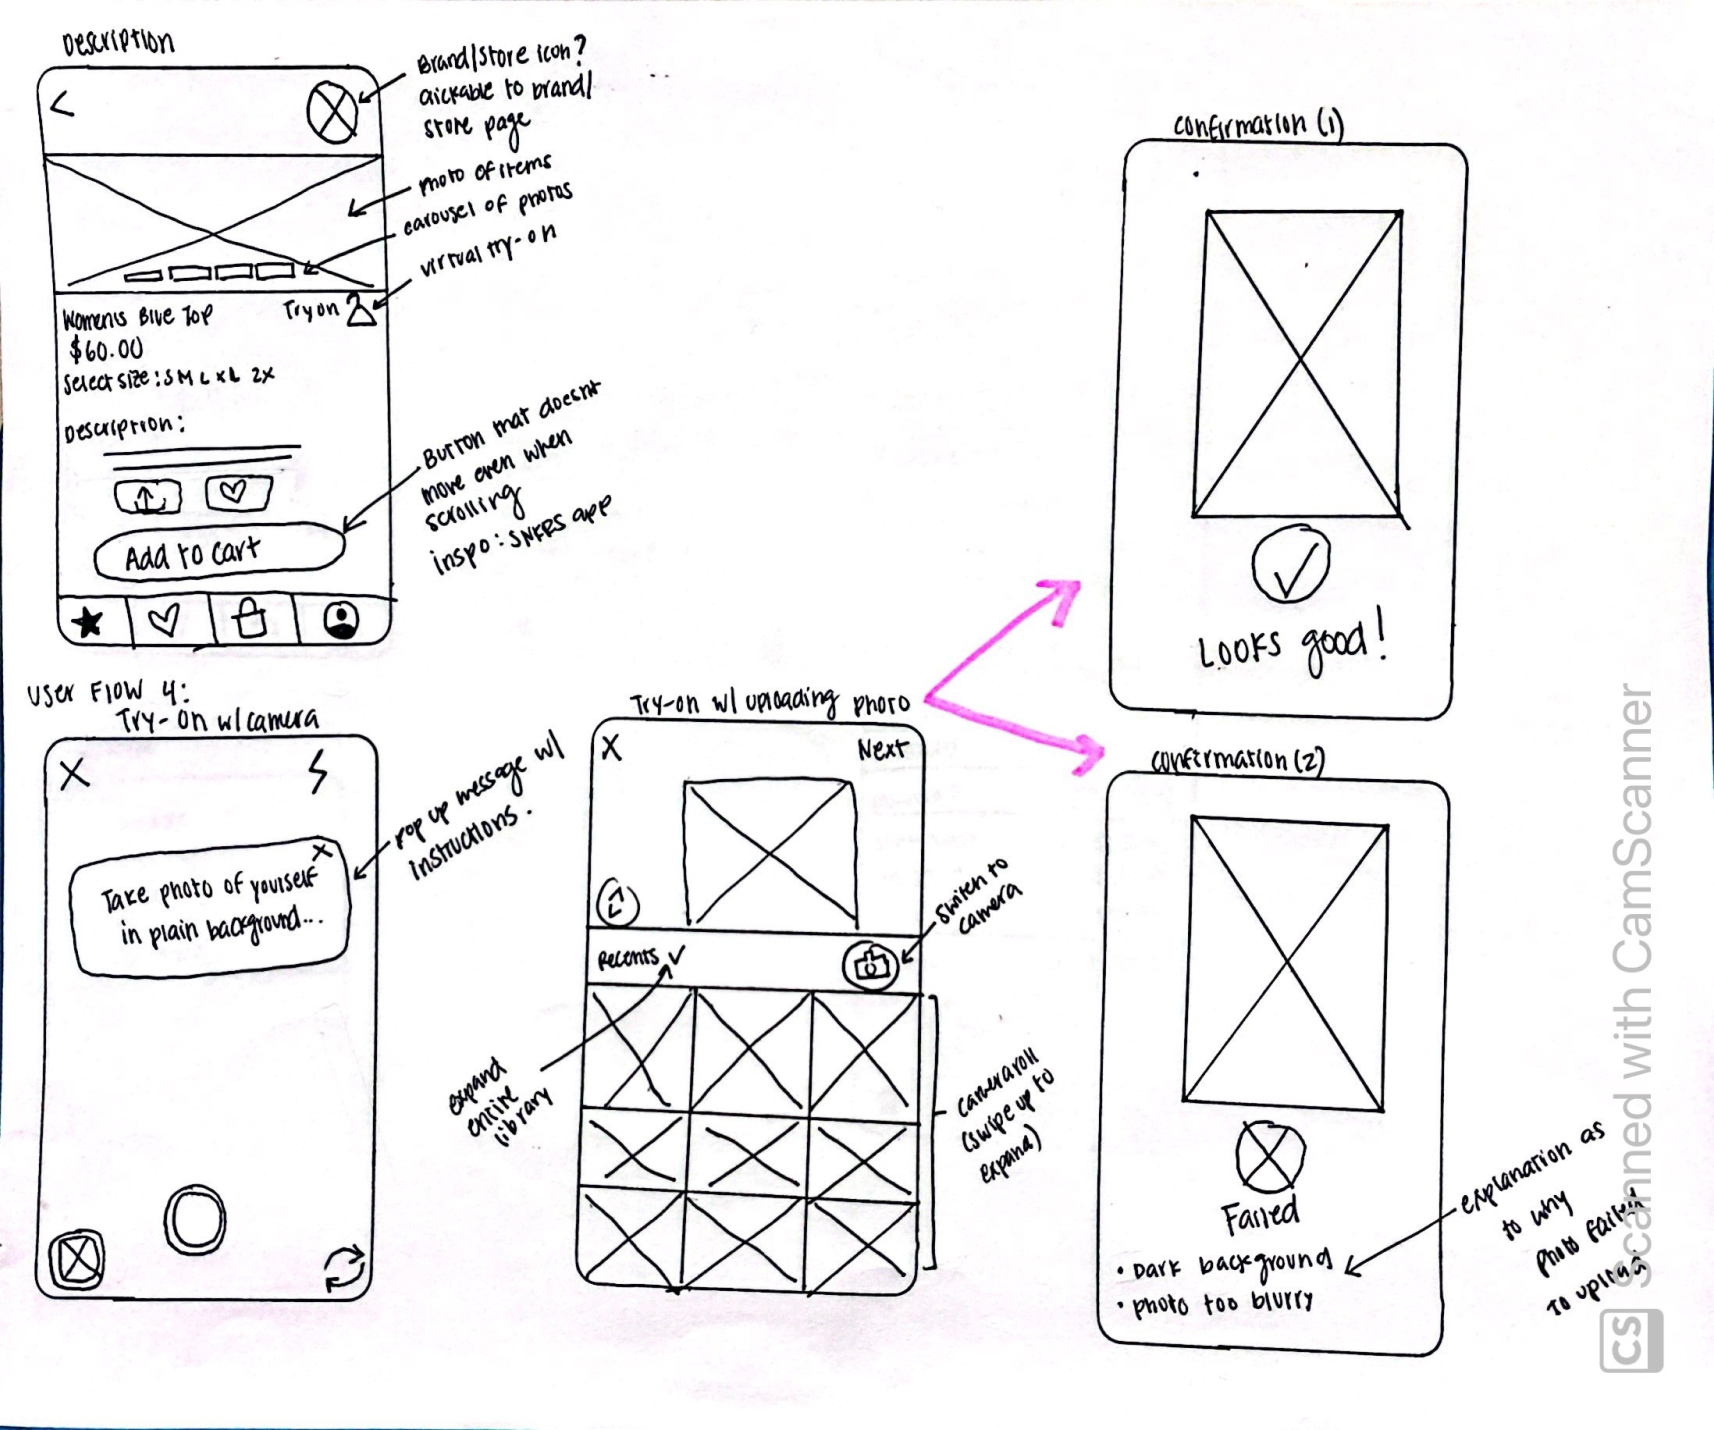 Description
Brand/Store icon?
clickable to brand/
store page
photo of items
carousel of photos
virtual try-on
Women's Blue Top
Try on
$60.00
Select size: S M L XL 2X
Description:
Button that doesnt
move even when
scrolling
inspo: SNKRS app
Add to cart
User Flow 4:
Try-on w/ camera
Take photo of yourself
in plain background...
pop up message w/
instructions.
Try-on w/ uploading photo
X
Next
Recents
switch to
camera
expand
entire
library
camera roll
(swipe up to
expand)
confirmation (1)
Looks good!
confirmation (2)
Failed
• Dark background
• photo too blurry
explanation as
to why
photo failed
to upload
Scanned with CamScanner
CS